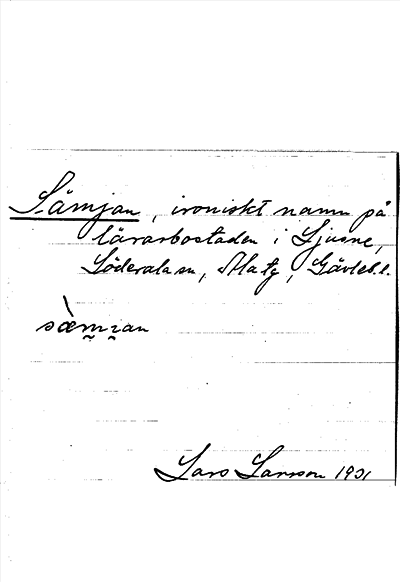 Sämjan, ironiskt namn på
lärarbostaden i Ljusne,
Söderala sn, Alatg, Gävleb.l.
sæ̀mjan
Lars Larsson 1931